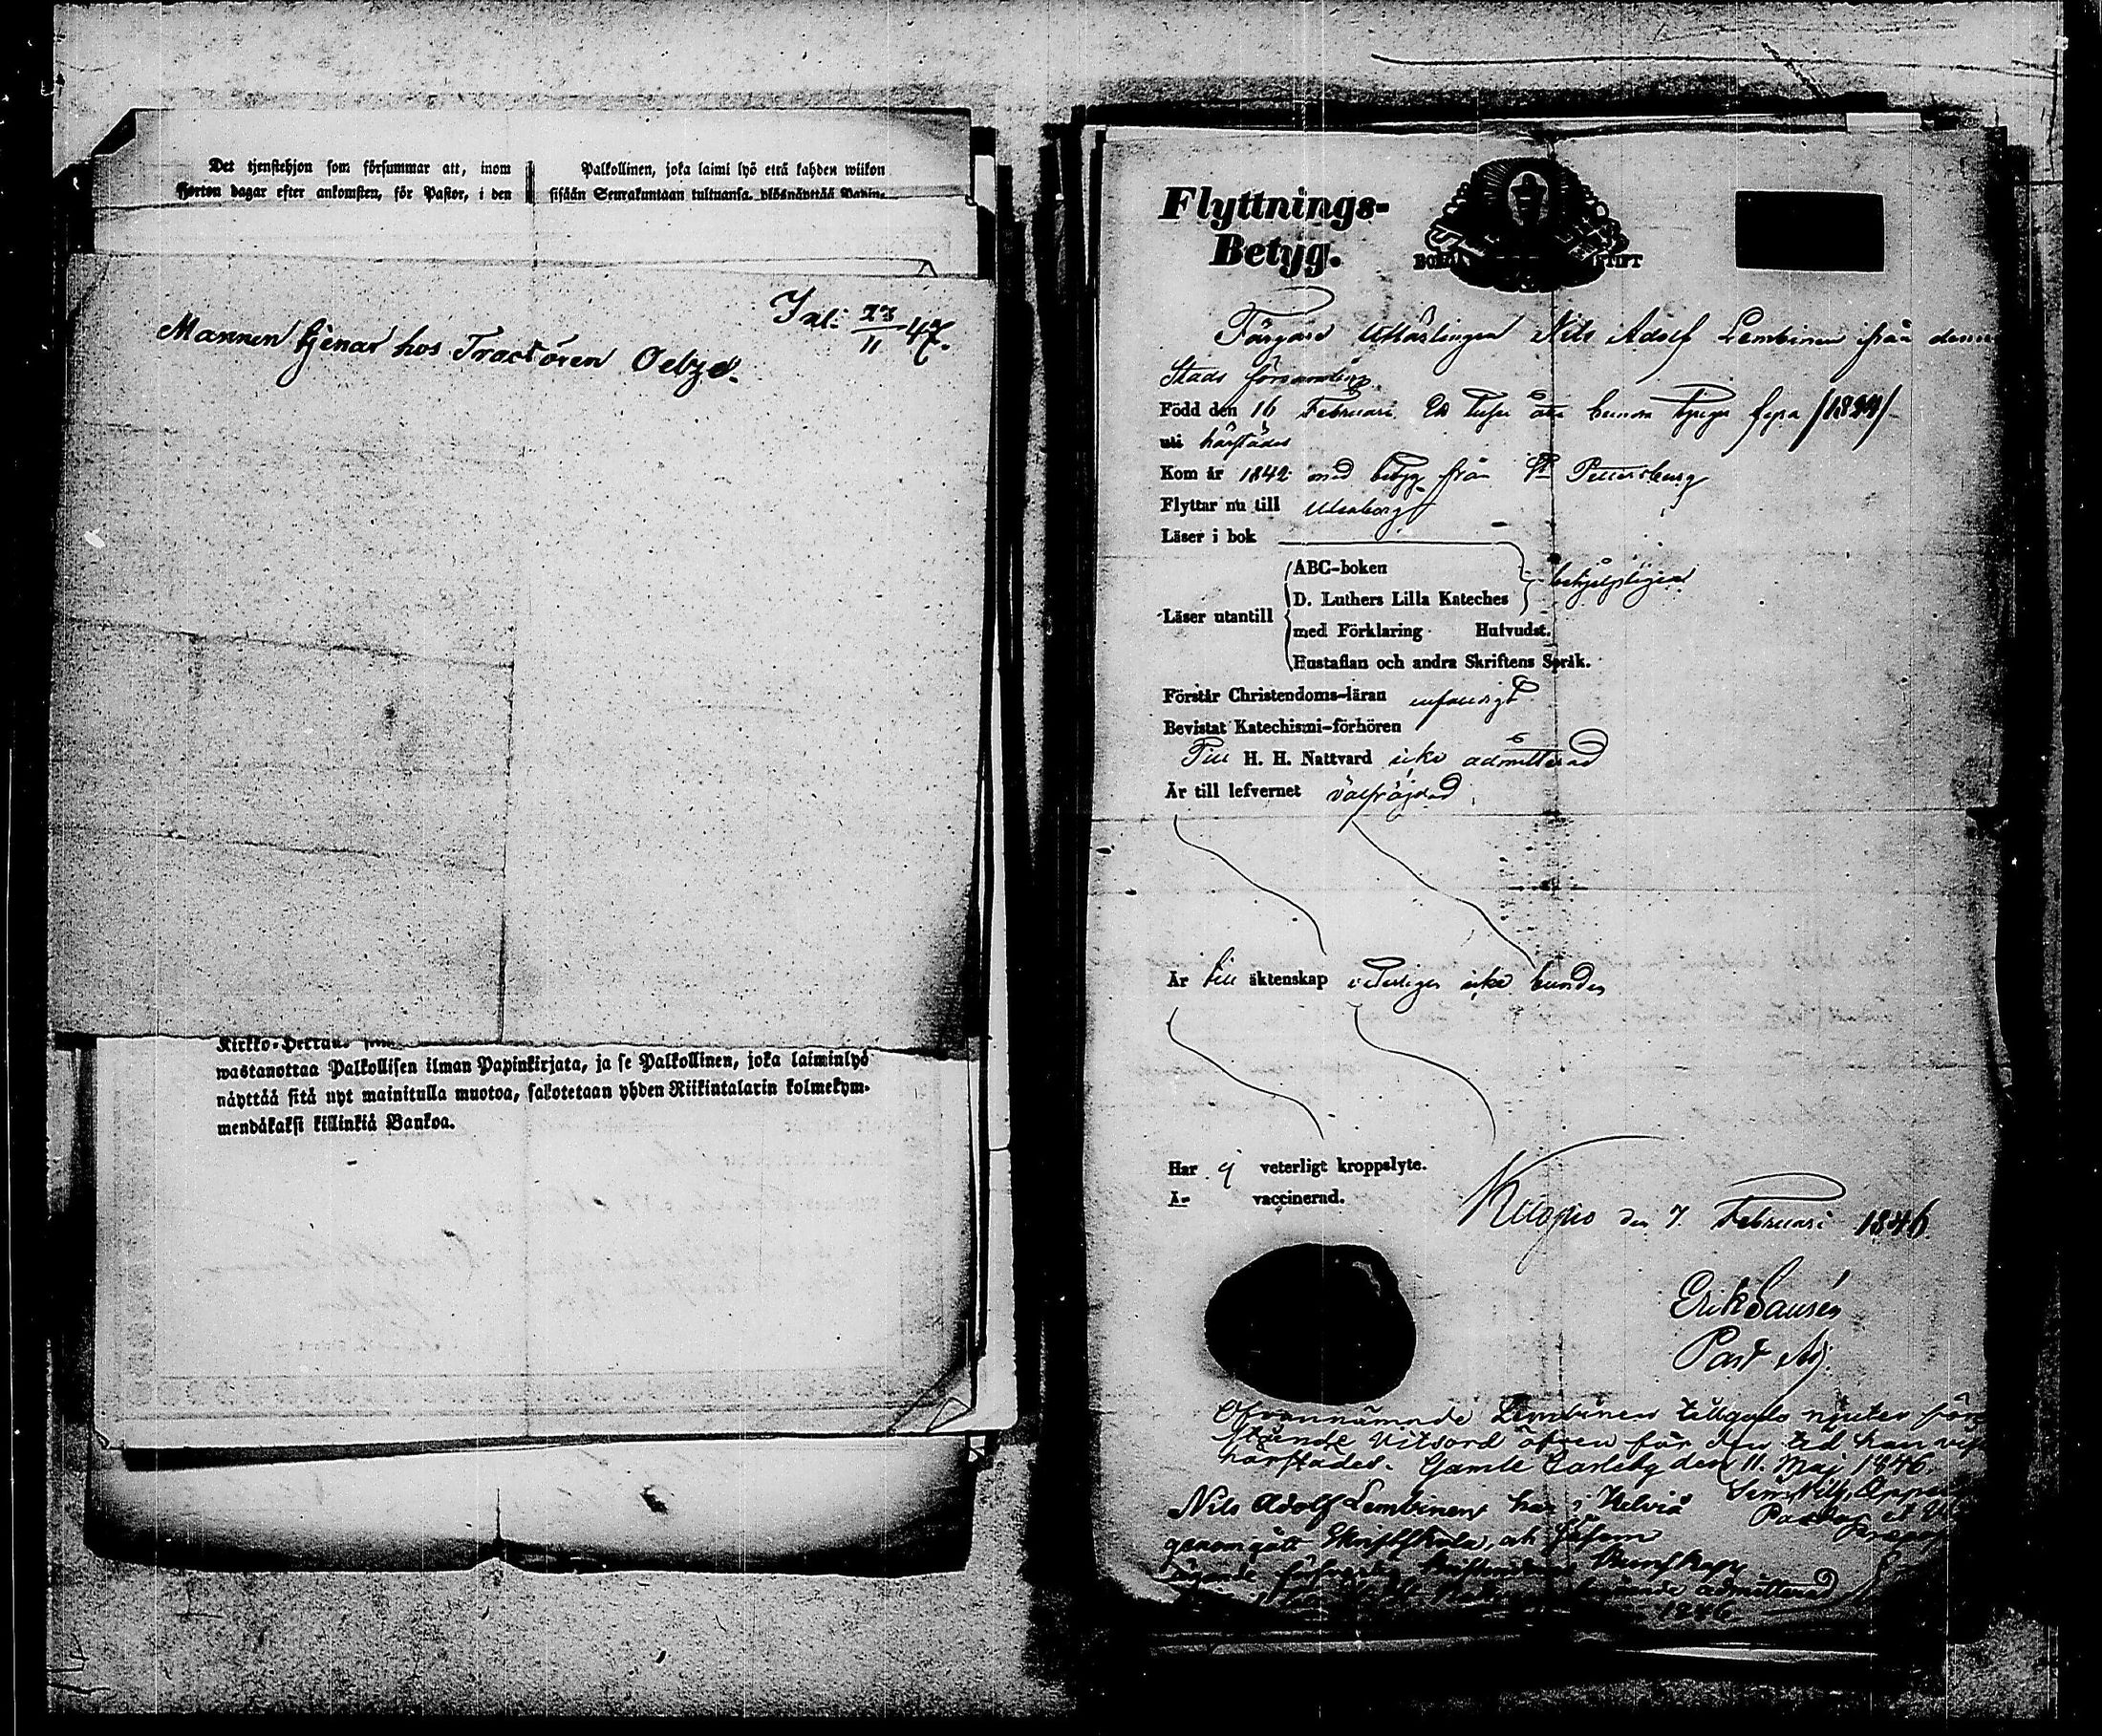 Det tjenstehjon som försummar att, inom
fjorton dagar efter ankomsten, för Pastor, i den
Palkollinen, joka laimi lyö että kahden wiikon
sisään Seurakuntaan tultuansa, ylösnäyttää Papin-
Inl: 23/11 47.
Mannen tjenar hos Tractören Oelze.
Kirkko-Herran
wastanottaa Palkollisen ilman Papinkirjata, ja se Palkollinen, joka laiminlyö
näyttää sitä nyt mainitulla muotoa, sakotetaan yhden Riikintalarin kolmekym-
mendäkaksi killinkiä Bankoa.
Flyttnings-
Betyg.
BORGÅ STIFT
Färgare Nils Adolf Lembinen ifrån denna
Stads församling
Född den 16 Februari
uti härstädes
Kom år 1842 med betyg från St Petersburg
Flyttar nu till Uleaborg
Läser i bok
Läser utantill
ABC-boken
D. Luthers Lilla Kateches
med Förklaring Hufvudst.
Hustaflan och andra Skriftens Språk.
behjelpligen
Förstår Christendoms-läran
Bevistat Katechismi-förhören
Till H. H. Nattvard icke admitterad
Är till lefvernet välfräjdad
Är till äktenskap veterligen icke bunden
Har ej veterligt kroppslyte.
Är vaccinerad.
Kuopio den 7. Februari 1846.
Erik Sausén
Past Adj.
Ofvannämnde Lembinen tillgodo njuter före
stående vitsord äfven för den tid han
härstädes. Gamle Carleby den 11. Maj 1846.
Nils Adolf Lembinen har i Kelviå
genomgått Skriftskola, och såsom
ägande kunskap
admitterad
1846